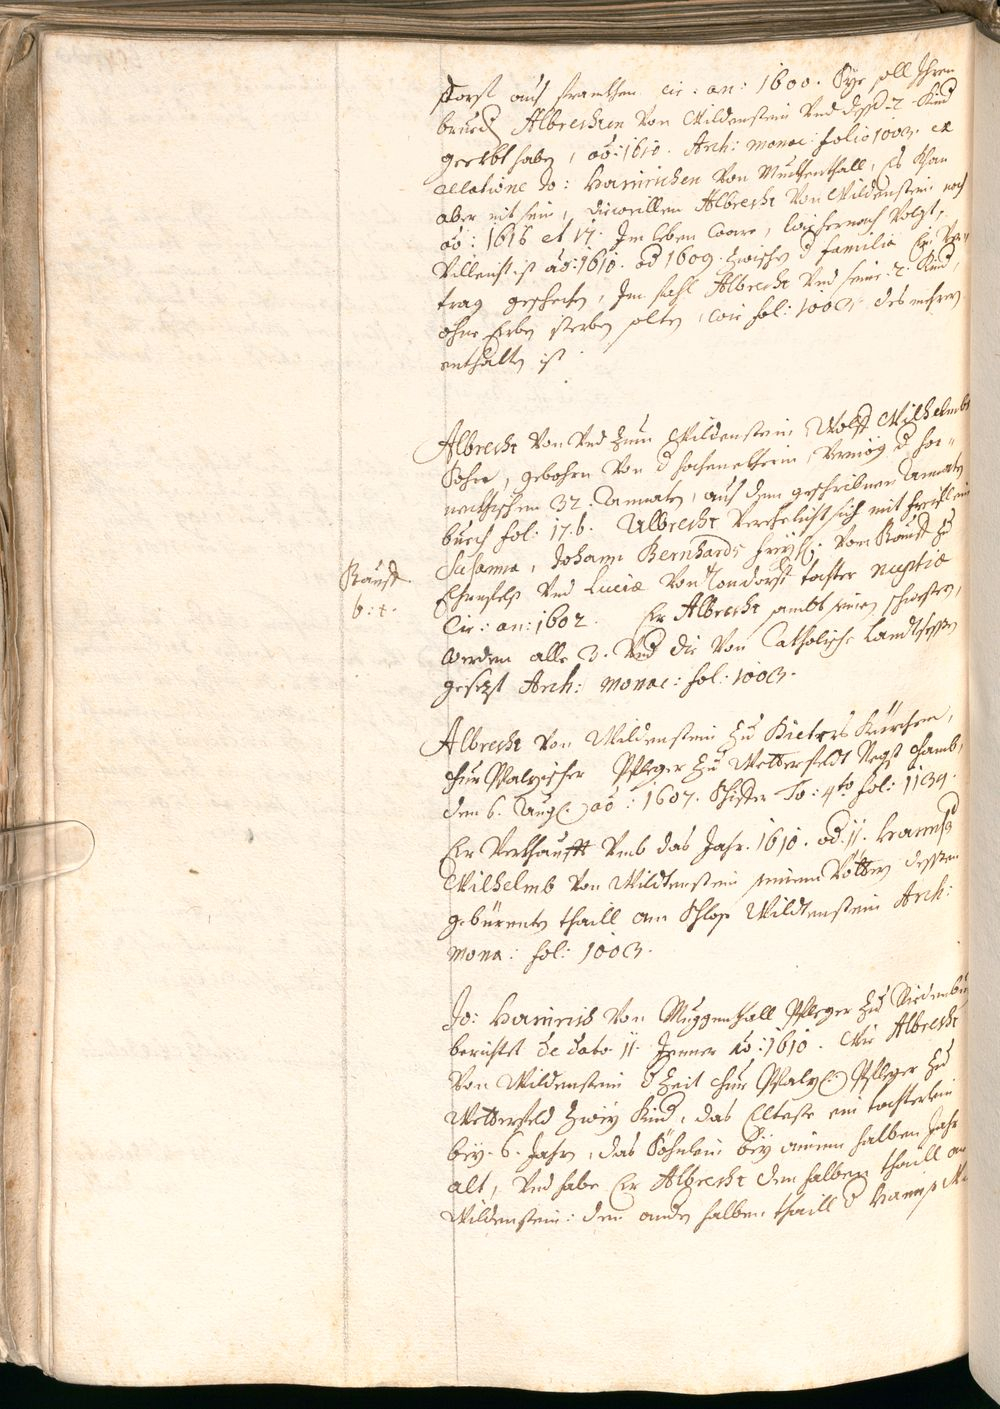 storff auß franckhen cir: an: 1600. Sye soll Ihren
brued Albrechten Von Wildenstein Vnd desse 2. Kind
geerbt haben, aõ: 1610. Arch: monac: folio 1003. ex
relatione Jo: Hainrichen Von Muckhenthall, es Khan
aber nit sein, dieweillen Albrecht Von Wildenstein noch
aõ: 1616 et 17. Im leben ware, wie hernach Volgt,
Villeicht ist aõ: 1610. od 1609. zwischen d familia ein Ver-
trag geschechen, Im fahl Albrecht Vnd seine 2. Kind,
ohne Erben sterben solten, wie fol: 1003. des mehren
enthalten ist.
Albrecht Von Vnd zum Wildenstein Wolff Wilhelmbs
Sohn, gebohren Von d
32. Annaten, auß dem geschribnen Annaten
buech fol: 17.b. Albrecht Verehelicht sich mit freyle
Susanna, Johann Bernhards freyh: Von Stauff zu
Ehrnfels Vnd Luciæ Von tochter nuptiæ
Stauff
b: t.
Cir: an: 1602. Er Albrecht sambt seinen schwestern,
werden alle 3. Vnd die Von Catholische Landtsessen
gesezt Arch: monac: fol: 1003.
Albrecht Von Wildenstein zu Dieters Kürchen,
Chur Pfalzischer Pfleger zu Wetterfeldt Negst Chamb,
den 6. Aug: aõ: 1607. Schifer To: 4to fol: 1134.
Er Verkhaufft Vmb das Jahr. 1610. od. 11. Hannß
Wilhelmb Von Wildtenstein seinem Vöttern dessen
gebürenten thaill am Schloß Wildtenstein Arch:
mona: fol: 1003.
Jo: Hainrich Von Muggenthall Pfleger zu Riedenbu
berichtet de dato 11. Jenner aõ: 1610. Wie Albrecht
Von Wildenstein d Zeit Chur Pfalz: Pfleger zu
Wetterfeld zwey Kind, das Elteste ein tochterlein
bey. 6. Jahr, das Söhnlein bey ainem halben Jahr
alt, Vnd habe Er Albrecht den halben thaill an
Wildenstein: den andern halben thaill d Hannß Wi